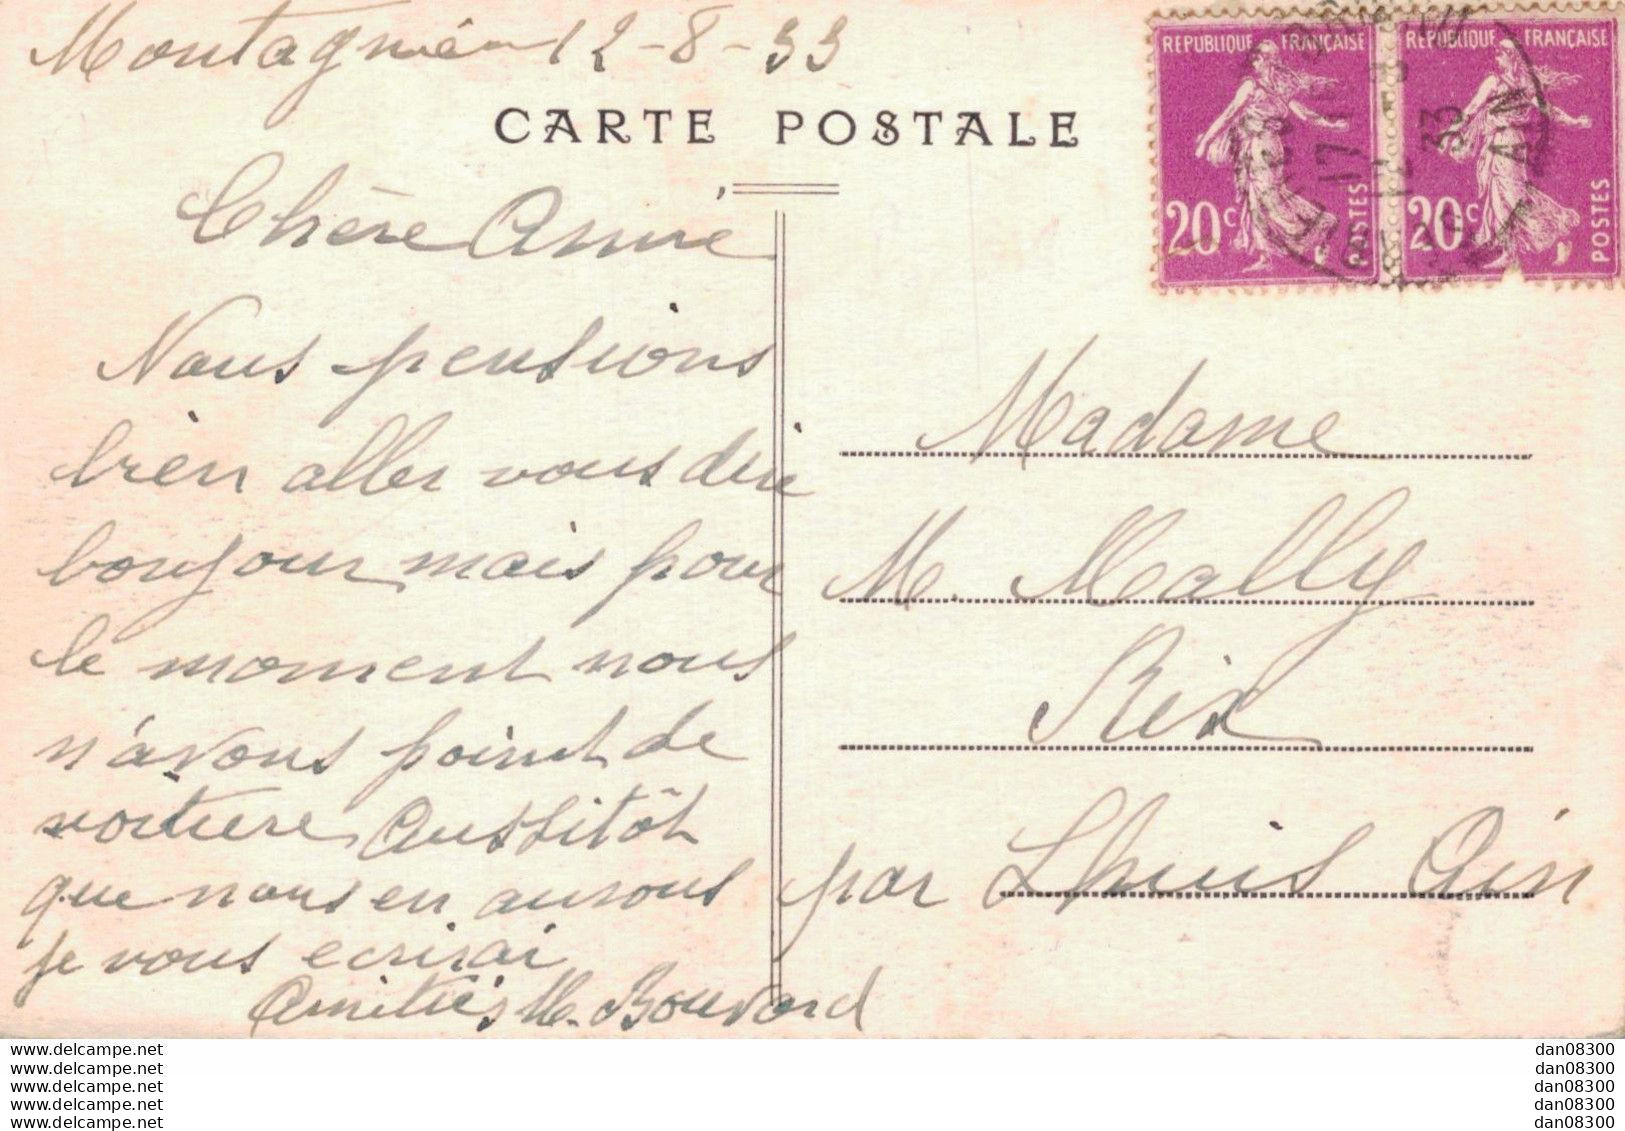 Montagnieu 12-8-33
CARTE POSTALE
Chère Amie
Nous pensions
bien aller vous dire
bonjour mais pour
le moment nous
n'avons point de
voiture Aussitôt
que nous en aurons
je vous ecrirai
Amitiés M. Bouvard
REPUBLIQUE FRANÇAISE
20c
POSTES
REPUBLIQUE FRANÇAISE
20c
POSTES
17
12
33
AIN
Madame
M. Mally
Rix
par Lhuis Ain
www.delcampe.net
www.delcampe.net
www.delcampe.net
www.delcampe.net
www.delcampe.net
dan08300
dan08300
dan08300
dan08300
dan08300